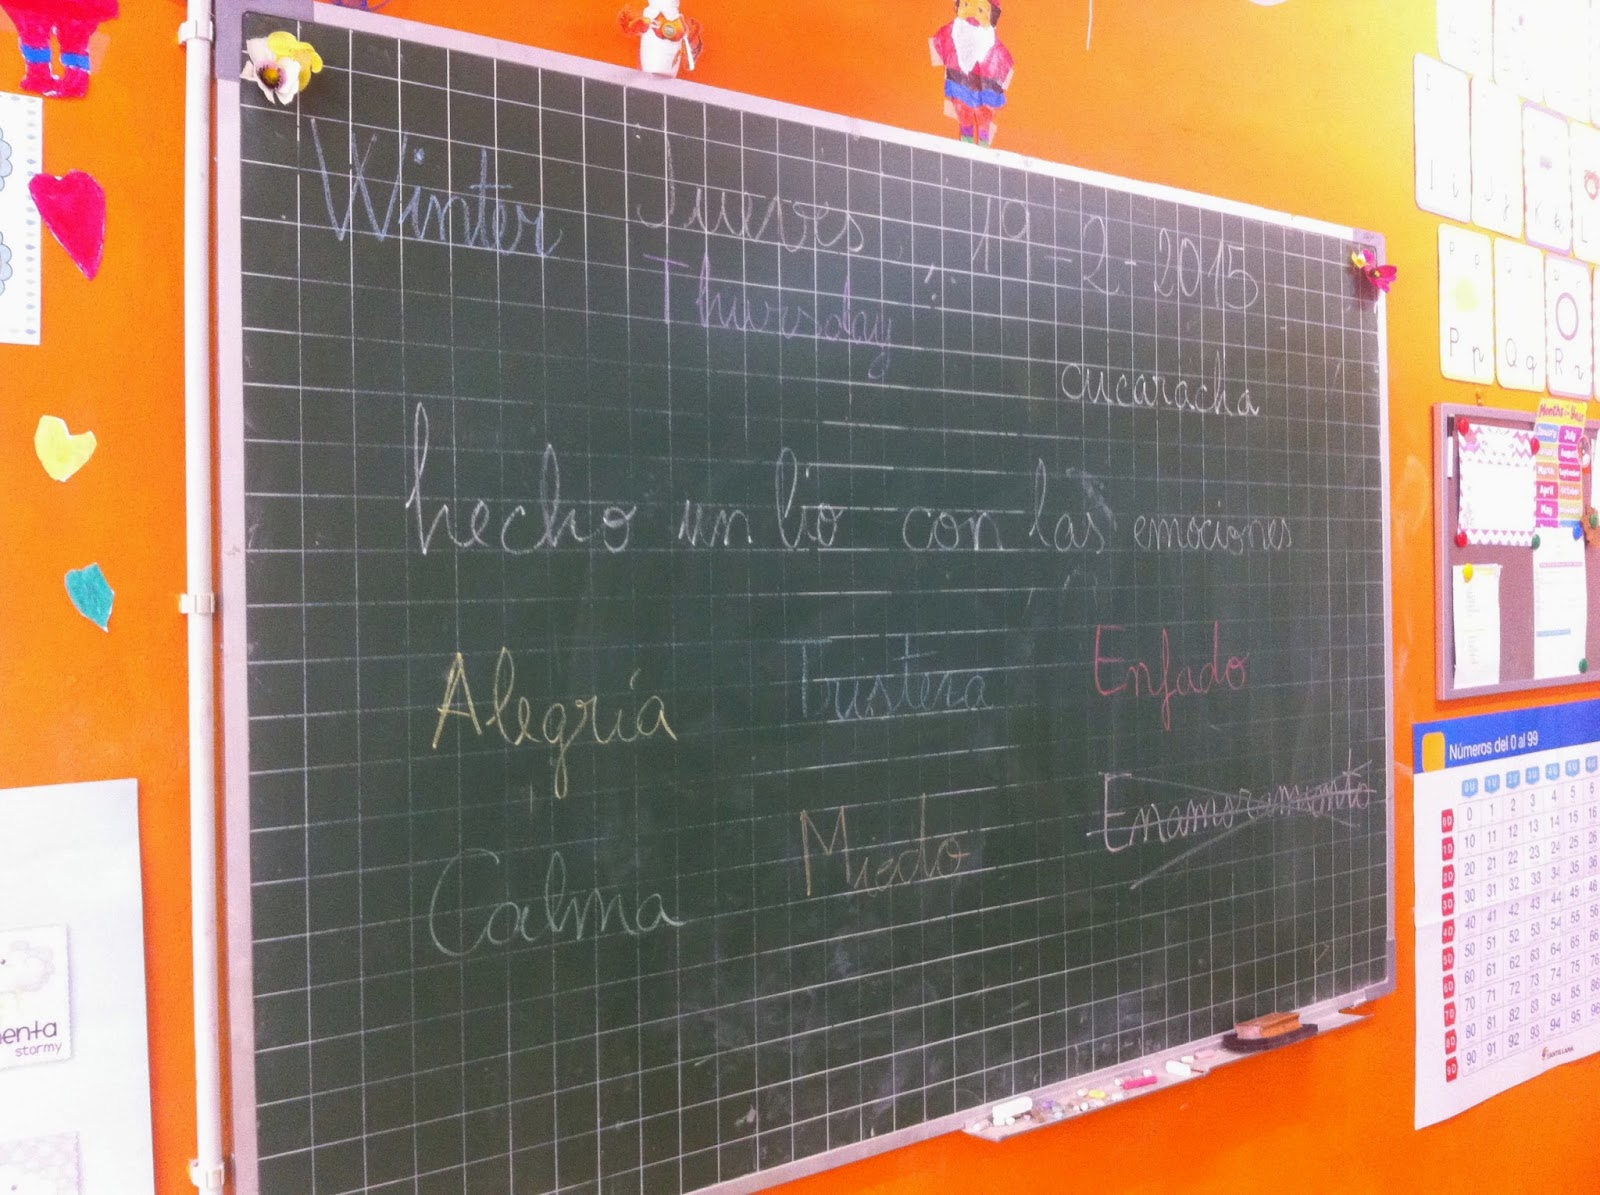 Winter Jueves, 19-2-2015
Thursday
cucaracha
hecho un lio con las emociones
Alegría Tristeza Enfado
Calma Miedo Enamoramiento
stormy
P p Q q R r
Months Year
July
March
April
May
Números del 0 al 99
0 1 2 3 4 5 6
10 11 12 13 14 15 16
20 21 22 23 24 25 26
30 31 32 33 34 35 36
40 41 42 43 44 45 46
50 51 52 53 54 55 56
60 61 62 63 64 65 66
70 71 72 73 74 75 76
80 81 82 83 84 85 86
90 91 92 93 94 95 96
SANTILLANA